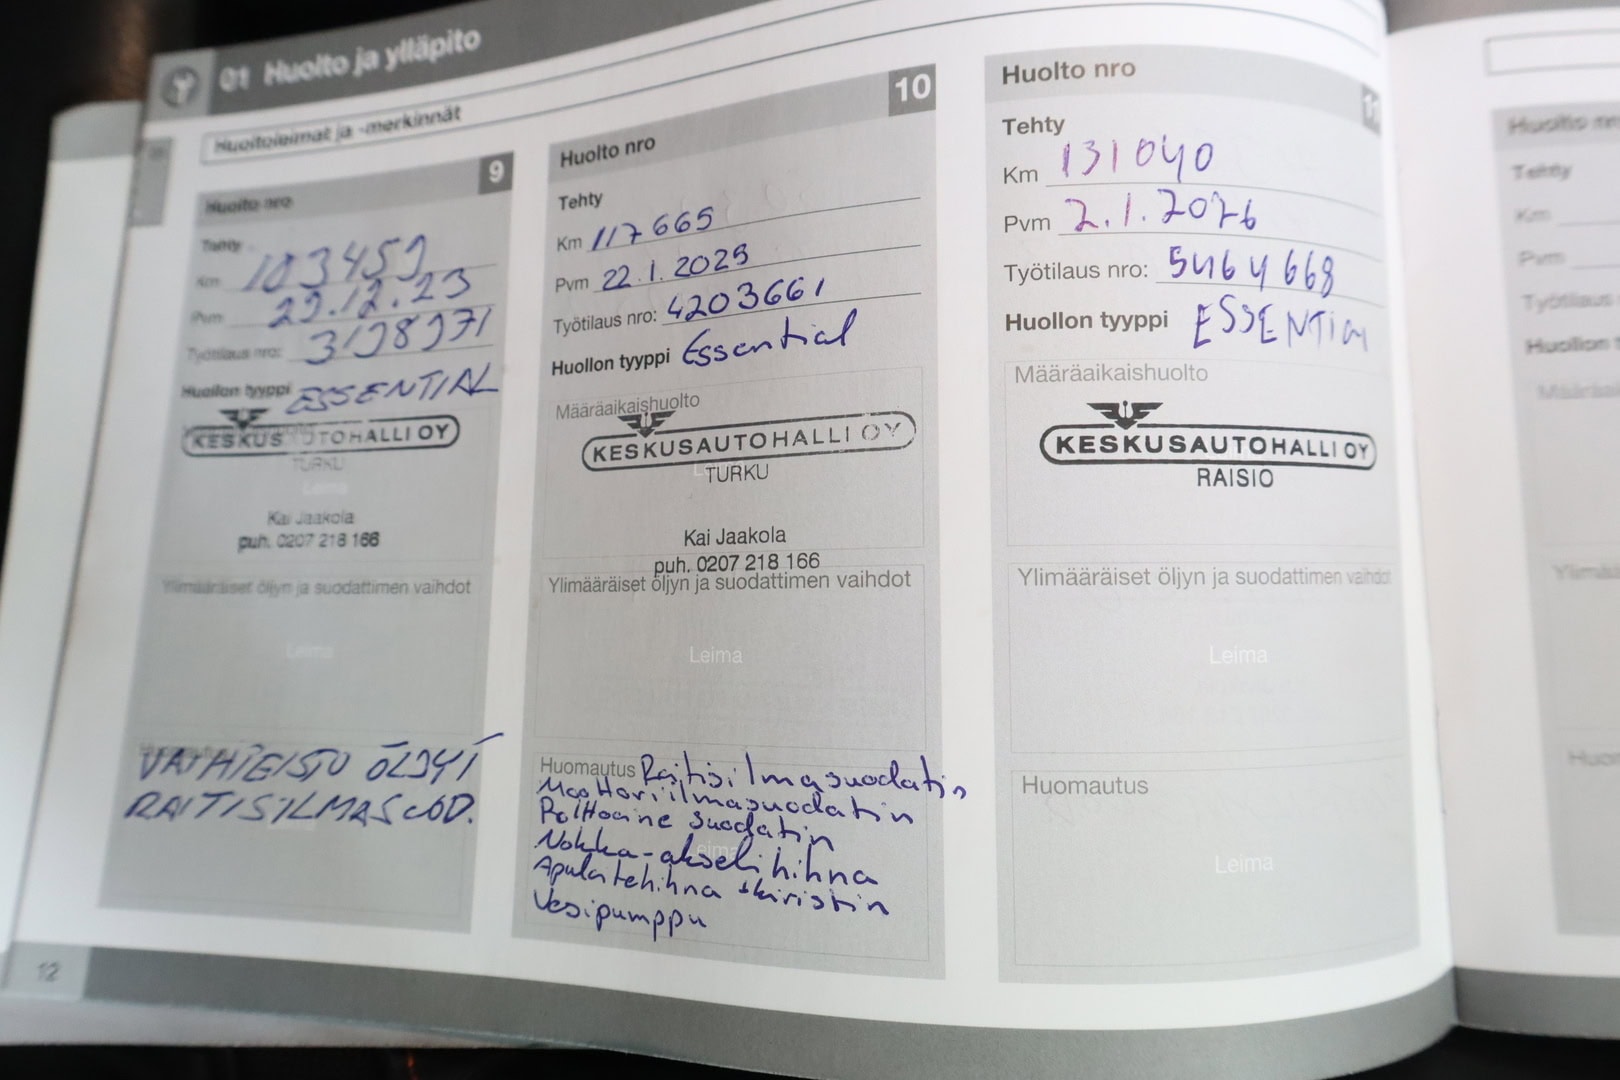 01 Huolto ja ylläpito
Huoltoleimat ja -merkinnät
9
Huolto nro
Tehty
Km 103459
Pvm 29.12.23
Työtilaus nro: 3198971
Huollon tyyppi ESSENTIAL
KESKUSAUTOHALLI OY
TURKU
Leima
Kai Jaakola
puh. 0207 218 166
Ylimääräiset öljyn ja suodattimen vaihdot
Leima
VAIHTEISTO ÖLJYT
RAITISILMASUOD.
12
10
Huolto nro
Tehty
Km 117665
Pvm 22.1.2025
Työtilaus nro: 4203661
Huollon tyyppi Essential
Määräaikaishuolto
KESKUSAUTOHALLI OY
TURKU
Kai Jaakola
puh. 0207 218 166
Ylimääräiset öljyn ja suodattimen vaihdot
Leima
Huomautus Raitisilmasuodatin,
Moottoriilmasuodatin
Polttoaine suodatin
Nokka-akseli hihna
Apulaitehihna + kiristin
Vesipumppu
11
Huolto nro
Tehty
Km 131040
Pvm 2.1.2026
Työtilaus nro: 5464668
Huollon tyyppi ESSENTIAL
Määräaikaishuolto
KESKUSAUTOHALLI OY
RAISIO
Ylimääräiset öljyn ja suodattimen vaihdot
Leima
Huomautus
Leima
Huolto nro
Tehty
Km
Pvm
Työtilaus
Huollon